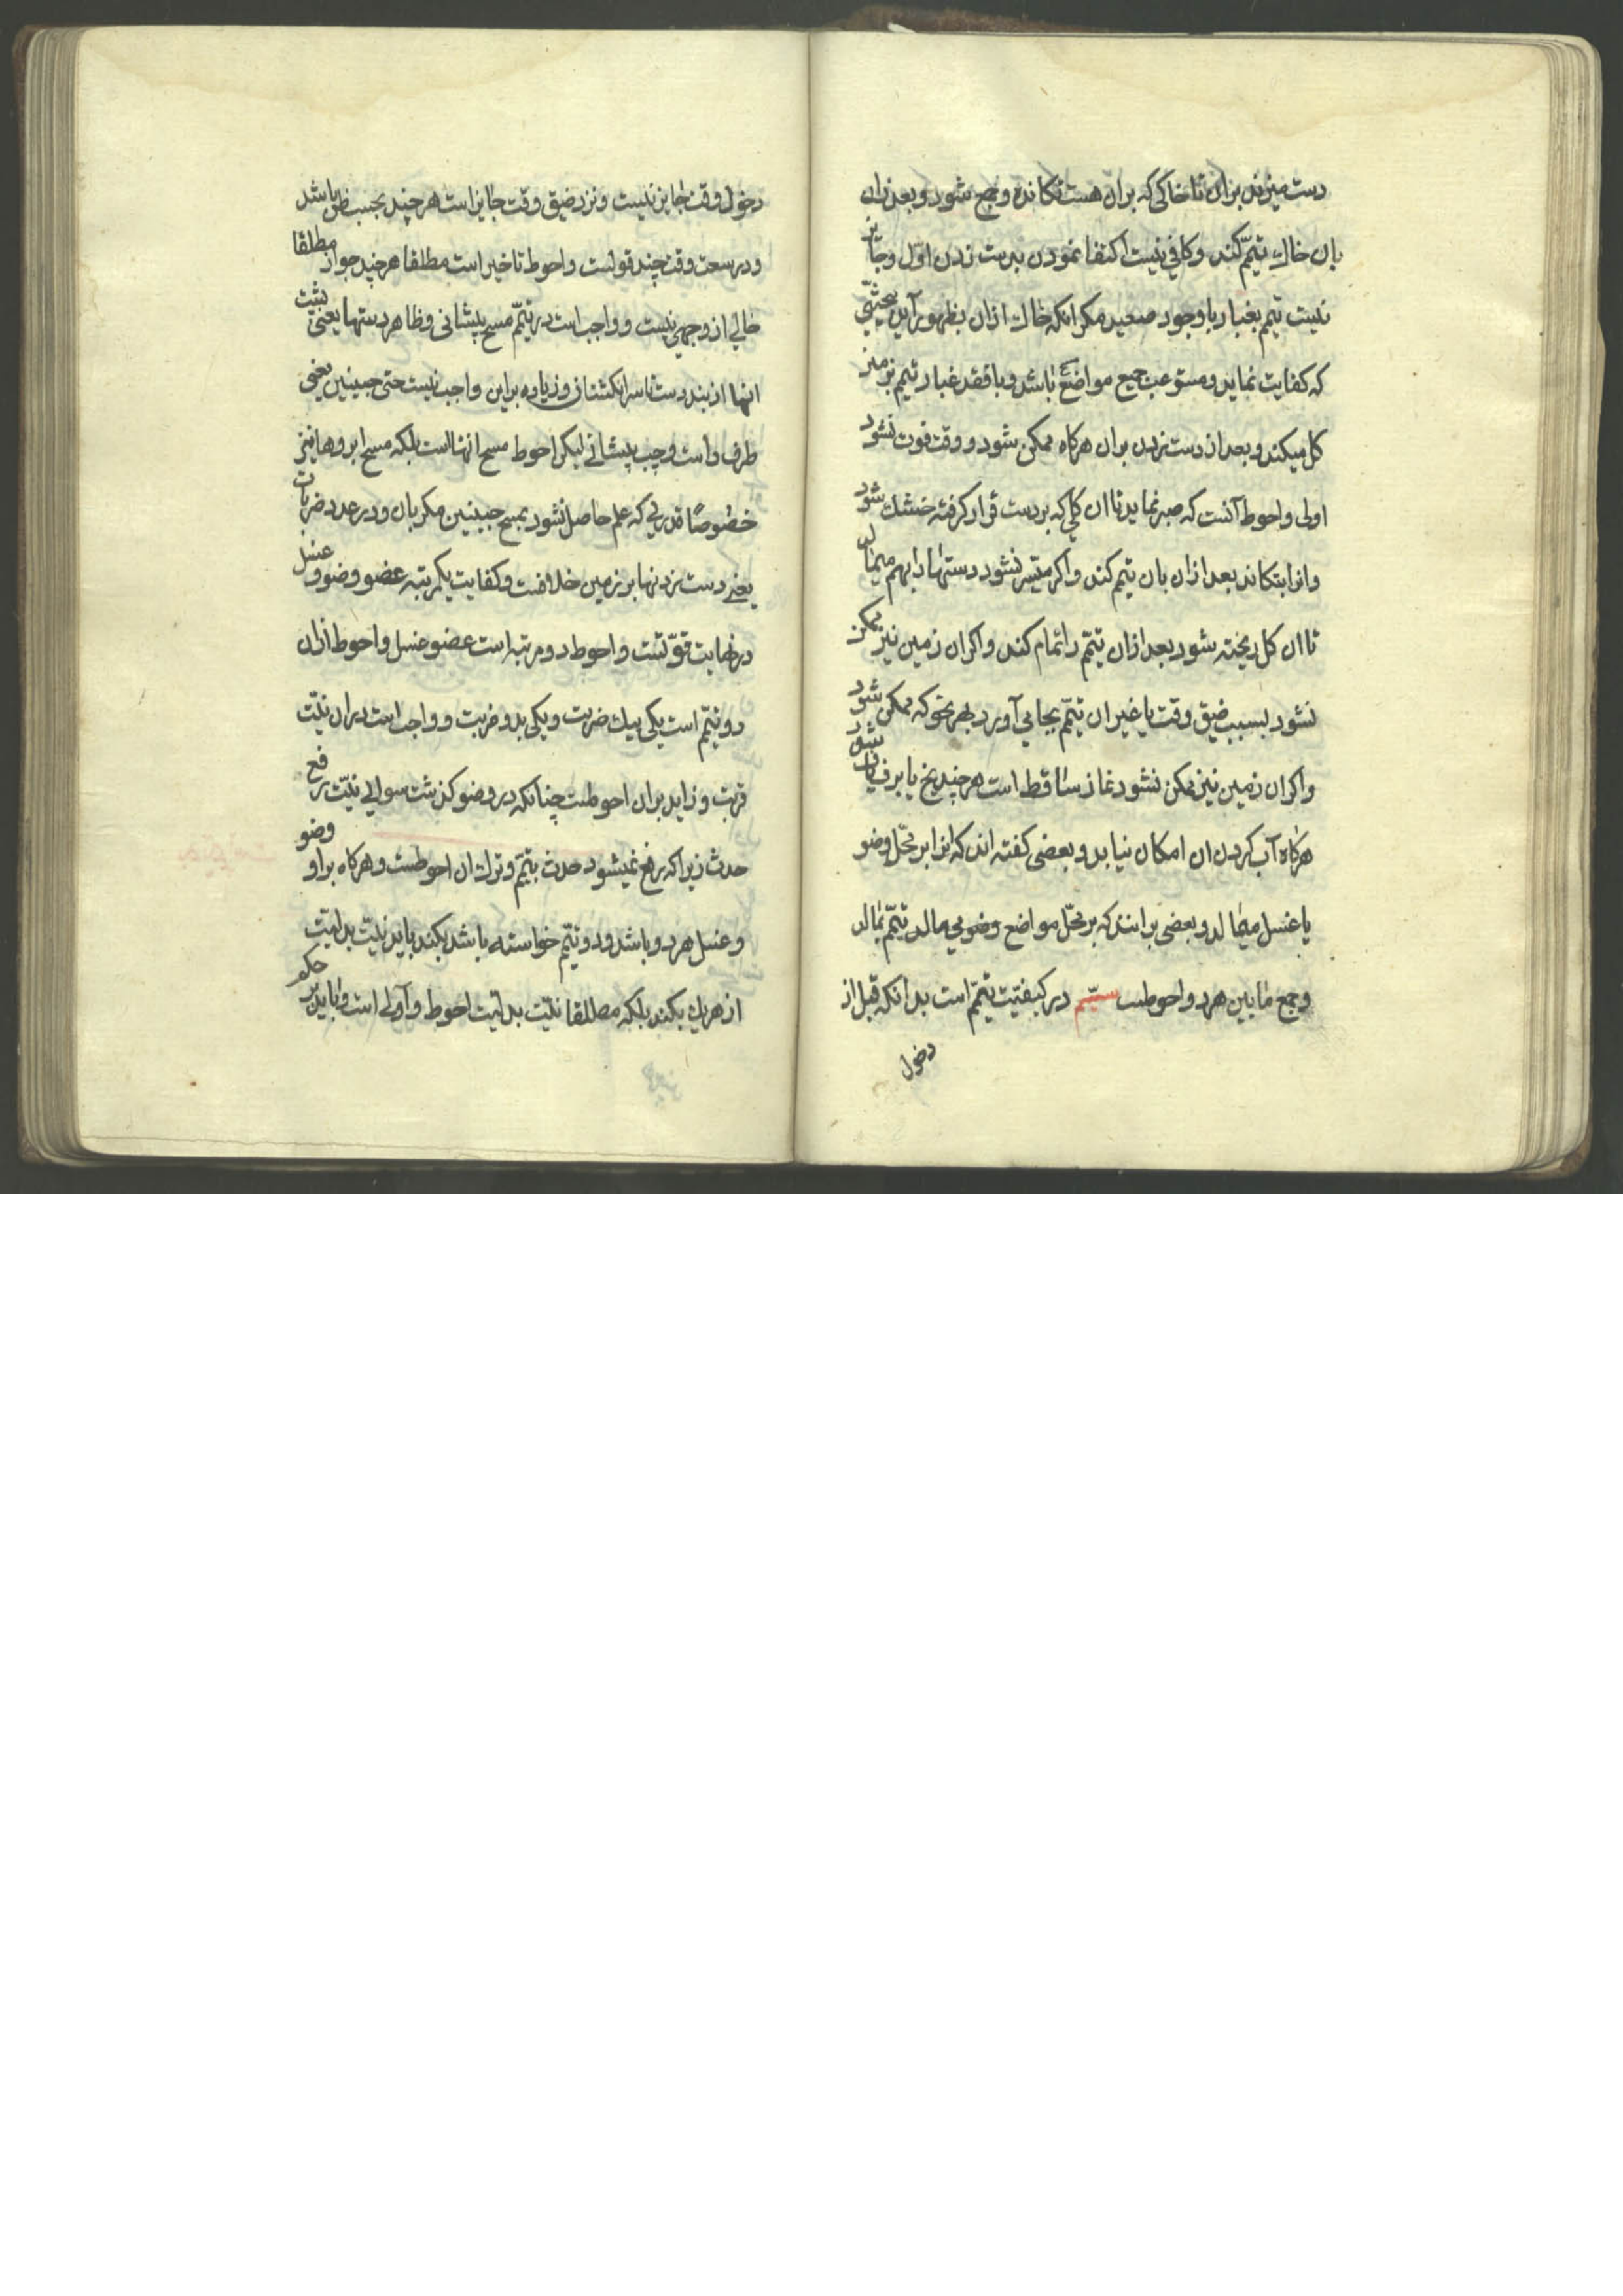 دست میزند بران تا خاکی که بران هست تکانده و جمع شود و بعد ازان
بان خاک تیمّم کند و کافی نیست اکتفا نمودن بدست زدن اوّل و جایز
نیست تیمم بغبار با وجود صعید مکر انکه خاک ازان بظهور آید بحیثیّتی
که کفایت نماید و مستوعب جمیع مواضع باشد و با فقد غبار تیمم بر زمین
کل میکند و بعد از دست زدن بران هرکاه ممکن شود و وقت فوت نشود
اولی و احوط آنست که صبر نماید تا ان کلی که بر دست قرار کرفته خشک شود
و انرا بتکاند بعد ازان بان تیمم کند و اکر میسّر نشود دستها را بهم میمالد
تا ان کل ریخته شود بعد ازان تیمّم را تمام کند و اکر ان زمین نیز ممکن
نشود بسبب ضیق وقت یا غیر ان تیمّم بجا می آورد بهر نحو که ممکن شود
و اکر ان زمین نیز ممکن نشود نماز ساقط است هر چند یخ یا برف یافت شود
هرکاه آب کردن ان امکان نیابد و بعضی کفته اند که انرا بر محّل وضو
یا غسل میمالد و بعضی برانند که بر محّل مواضع وضو می مالد تیمّم بمالد
و جمع مابین هر دو احوطست سیّم در کیفیّت تیمّم است بدانکه قبل از
دخول
دخول وقت جایز نیست و نزد ضیق وقت جایز است هر چند بحسب ظن باشد
و در سعت وقت چند قولست و احوط تاخیر است مطلقا هر چند جواز مطلقا
خالی از وجهی نیست و واجب است در تیمّم مسح پیشانی و ظاهر دستها یعنی پشت
انها از بند دست تا سر انکشتان و زیاده براین واجب نیست حتی جبینین یعنی
طرف راست و چپ پیشانی لیکن احوط مسح انهاست بلکه مسح ابروها نیز
خصوصًا قدری که علم حاصل نشود بمسح جبینین مکر بان و در عدد ضربات
یعنی دست زدنها بر زمین خلافست و کفایت یکمرتبه عضو وضو و غسل
در نهایت قوّتست و احوط دو مرتبه است عضو غسل و احوط ازان
دو تیمّم است یکی بیک ضربت و یکی بدو ضربت و واجب است دران نیّت
قربت و زاید بران احوطست چنانکه در وضو کذشت سوای نیّت رفع
حدث زیرا که رفع نمیشود حدث بتیمّم و ترک ان احوطست و هرکاه براو وضو
و غسل هر دو باشد و دو تیمّم خواسته باشد بکند باید نیّت بدلیّت
از هریک بکند بلکه مطلقا نیّت بدلیّت احوط و اولی است و باید بر حکم